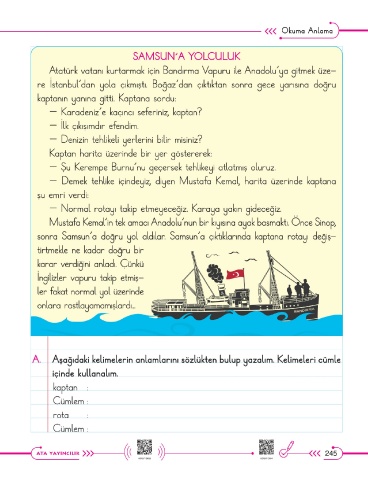 Okuma Anlama
SAMSUN'A YOLCULUK
Atatürk vatanı kurtarmak için Bandırma Vapuru ile Anadolu'ya gitmek üze-
re İstanbul'dan yola çıkmıştı. Boğaz'dan çıktıktan sonra gece yarısına doğru
kaptanın yanına gitti. Kaptana sordu:
— Karadeniz'e kaçıncı seferiniz, kaptan?
— İlk çıkışımdır efendim.
— Denizin tehlikeli yerlerini bilir misiniz?
Kaptan harita üzerinde bir yer göstererek:
— Şu Kerempe Burnu'nu geçersek tehlikeyi atlatmış oluruz.
— Demek tehlike içindeyiz, diyen Mustafa Kemal, harita üzerinde kaptana
şu emri verdi:
— Normal rotayı takip etmeyeceğiz. Karaya yakın gideceğiz.
Mustafa Kemal'in tek amacı Anadolu'nun bir kıyısına ayak basmaktı. Önce Sinop,
sonra Samsun'a doğru yol aldılar. Samsun'a çıktıklarında kaptana rotayı değiş-
tirtmekle ne kadar doğru bir
karar verdiğini anladı. Çünkü
İngilizler vapuru takip etmiş-
ler fakat normal yol üzerinde
onlara rastlayamamışlardı..
A. Aşağıdaki kelimelerin anlamlarını sözlükten bulup yazalım. Kelimeleri cümle
içinde kullanalım.
kaptan :
Cümlem :
rota :
Cümlem :
ATA YAYINCILIK
245